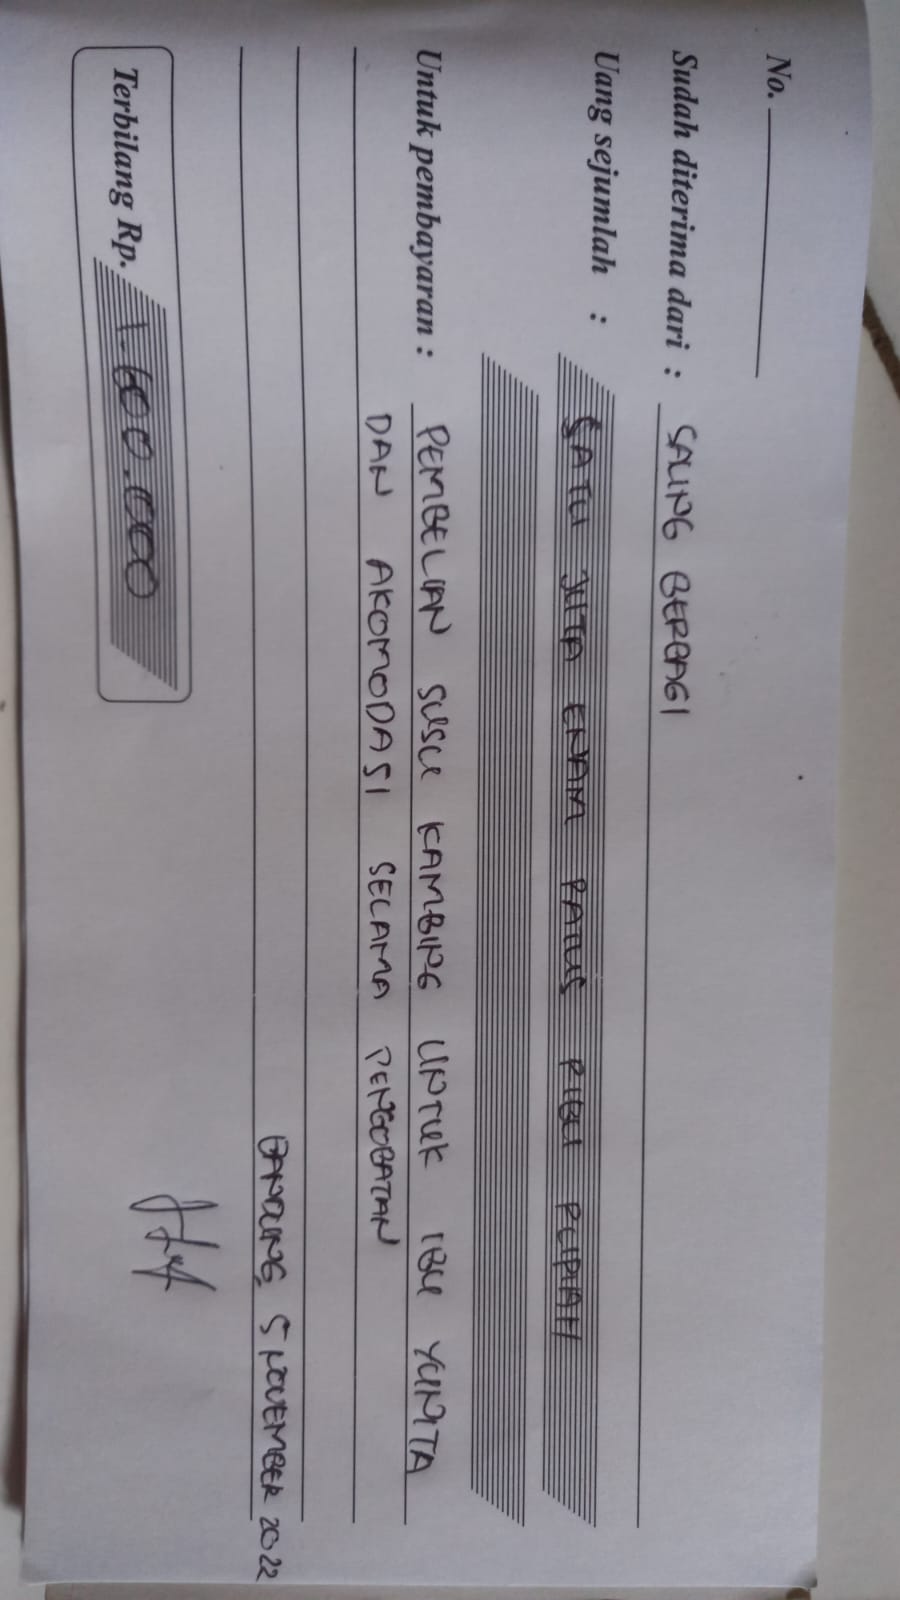 No.
Sudah diterima dari : SALING BERBAGI
Uang sejumlah : SATU JUTA ENAM RATUS RIBU RUPIAH
Untuk pembayaran : PEMBELIAN SUSU KAMBING UNTUK IBU YUNITA
DAN AKOMODASI SELAMA PENGOBATAN
BANDUNG, 5 NOVEMBER 2022
Terbilang Rp. 1.600.000